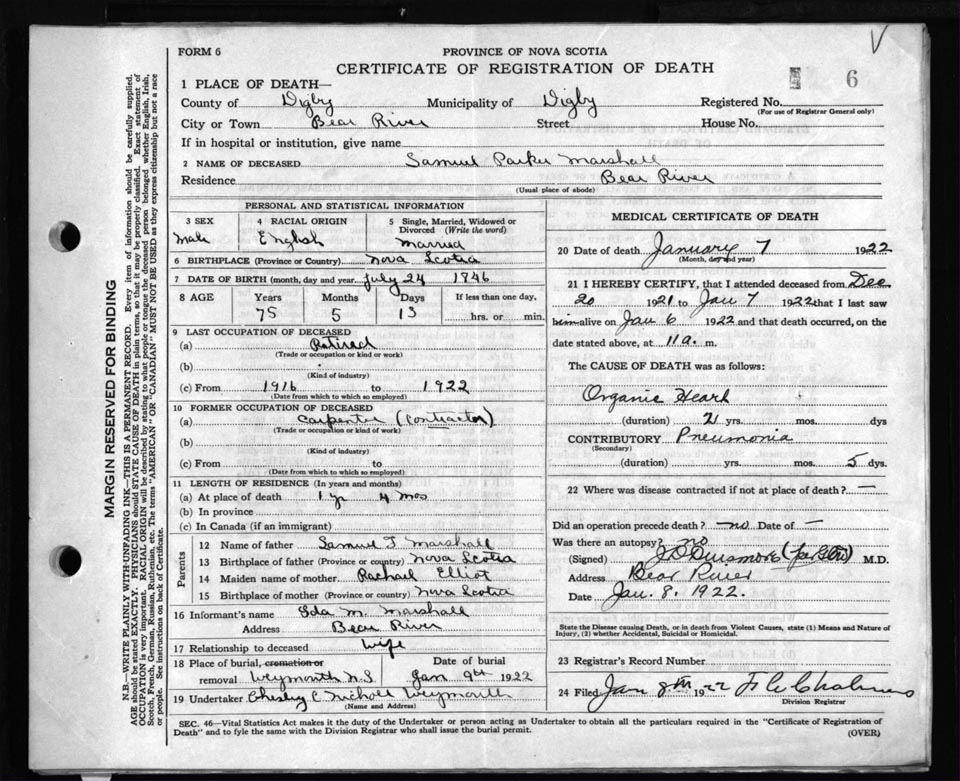 V
FORM 6
PROVINCE OF NOVA SCOTIA
CERTIFICATE OF REGISTRATION OF DEATH
6
1 PLACE OF DEATH—
County of Digby Municipality of Digby Registered No.
(For use of Registrar General only)
City or Town Bear River Street House No.
If in hospital or institution, give name
2 NAME OF DECEASED Samuel Parker Marshall
Residence Bear River
(Usual place of abode)
PERSONAL AND STATISTICAL INFORMATION
3 SEX 4 RACIAL ORIGIN 5 Single, Married, Widowed or
Divorced (Write the word)
Male English Married
6 BIRTHPLACE (Province or Country) Nova Scotia
7 DATE OF BIRTH (month, day and year) July 24 1846
8 AGE Years Months Days If less than one day,
75 5 13 hrs. or min.
9 LAST OCCUPATION OF DECEASED
(a) Retired
(Trade or occupation or kind of work)
(b)
(Kind of industry)
(c) From 1916 to 1922
(Date from which to which so employed)
10 FORMER OCCUPATION OF DECEASED
(a) Carpenter (Contractor)
(Trade or occupation or kind of work)
(b)
(Kind of industry)
(c) From to
(Date from which to which so employed)
11 LENGTH OF RESIDENCE (In years and months)
(a) At place of death 1 yr 4 mos
(b) In province
(c) In Canada (if an immigrant)
Parents
12 Name of father Samuel J Marshall
13 Birthplace of father (Province or country) Nova Scotia
14 Maiden name of mother Rachael Elliot
15 Birthplace of mother (Province or country) Nova Scotia
16 Informant's name Ida M. Marshall
Address Bear River
17 Relationship to deceased Wife
18 Place of burial, cremation or Date of burial
removal Weymouth N.S Jan 9th 1922
19 Undertaker Chesley C Nichols Weymouth
(Name and Address)
MEDICAL CERTIFICATE OF DEATH
20 Date of death January 7 1922
(Month, day and year)
21 I HEREBY CERTIFY, that I attended deceased from Dec
20 1921 to Jan 7 1922 that I last saw
him alive on Jan 6 1922 and that death occurred, on the
date stated above, at 11 a. m.
The CAUSE OF DEATH was as follows:
Organic Heart
(duration) 2 yrs. mos. dys
CONTRIBUTORY Pneumonia
(Secondary)
(duration) yrs. mos. 5 dys.
22 Where was disease contracted if not at place of death? —
Did an operation precede death? no Date of —
Was there an autopsy? no
(Signed) M.D.
Address Bear River
Date Jan. 8. 1922.
State the Disease causing Death, or in death from Violent Causes, state (1) Means and Nature of
Injury, (2) whether Accidental, Suicidal or Homicidal.
23 Registrar's Record Number
24 Filed Jan 8th 1922
Division Registrar
SEC. 46—Vital Statistics Act makes it the duty of the Undertaker or person acting as Undertaker to obtain all the particulars required in the "Certificate of Registration of
Death" and to fyle the same with the Division Registrar who shall issue the burial permit.
(OVER)
MARGIN RESERVED FOR BINDING
N.B.—WRITE PLAINLY WITH UNFADING INK—THIS IS A PERMANENT RECORD. Every item of information should be carefully supplied.
AGE should be stated EXACTLY. PHYSICIANS should STATE CAUSE OF DEATH in plain terms, so that it may be properly classified. Exact statement of
OCCUPATION is very important. RACIAL ORIGIN will be described by stating to what people or tongue the deceased person belonged whether English, Irish,
Scotch, French, German, Russian, Ruthenian, etc. The terms "AMERICAN" OR "CANADIAN" MUST NOT BE USED as they express citizenship but not a race
or people. See instructions on back of Certificate.